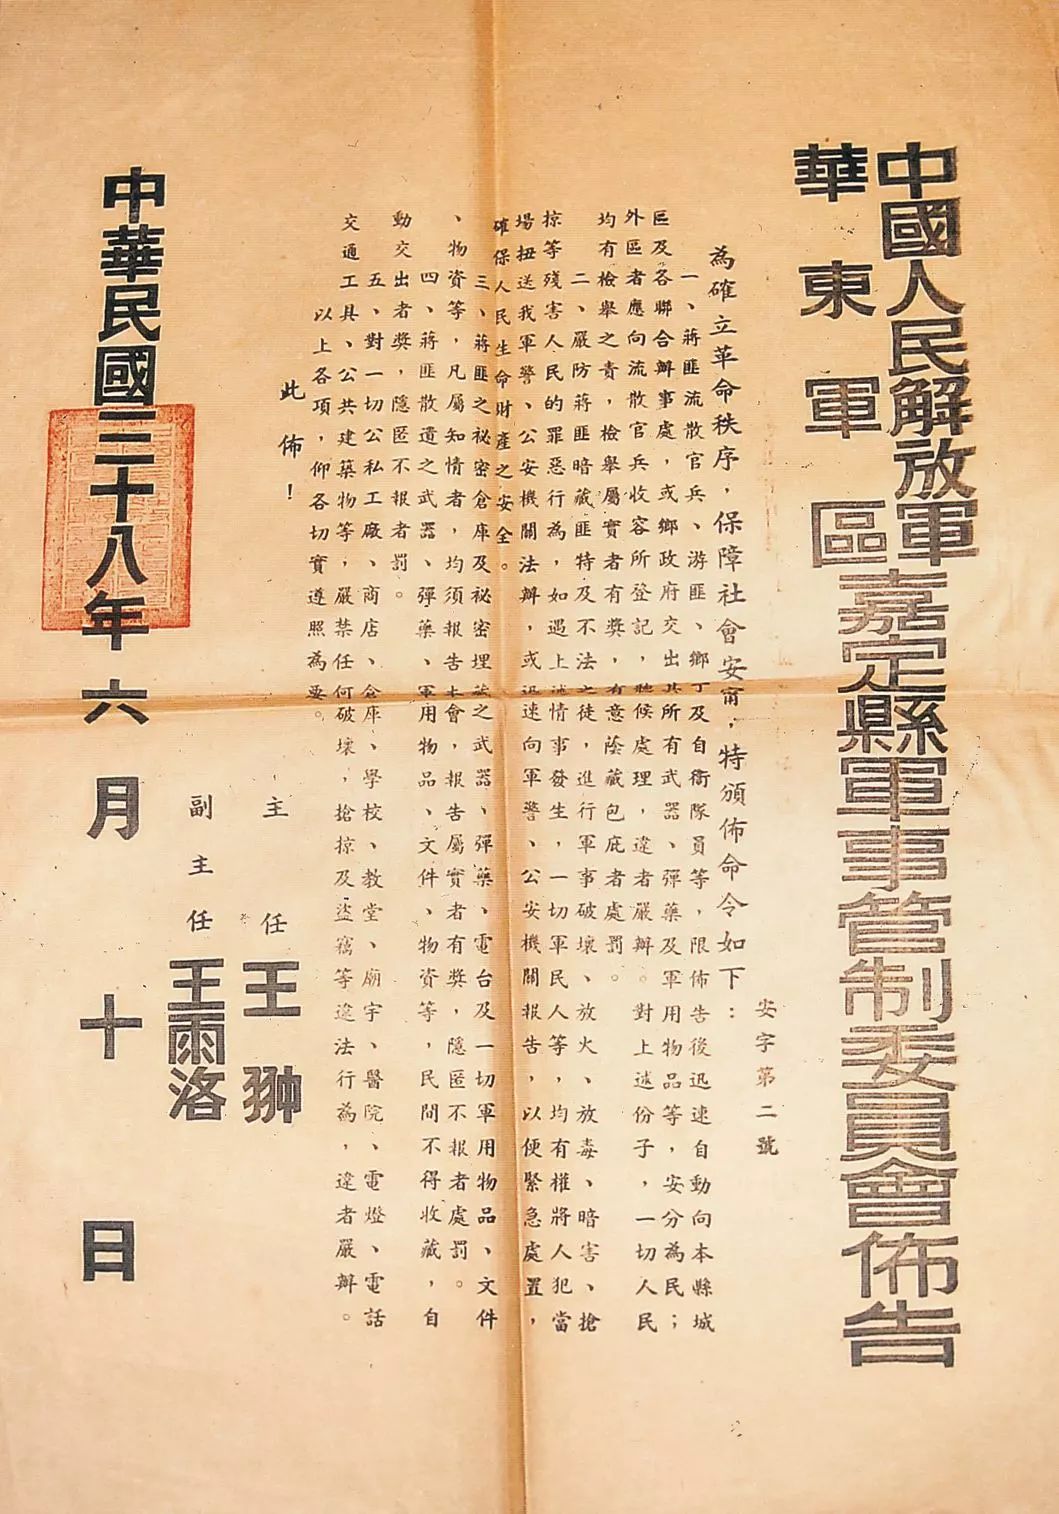 中國人民解放軍
華東軍區
嘉定縣軍事管制委員會佈告
安字第二號
為確立革命秩序,保障社會安甯,特頒佈命令如下:
一、蔣匪流散官兵、游匪、鄉丁及自衛隊員等,限佈告後迅速自動向本縣城
區及各聯合辦事處,或鄉政府交出其所有武器、彈藥及軍用物品等,安分為民;
外區者應向流散官兵收容所登記,聽候處理,違者嚴辦。對上述份子,一切人民
均有檢舉之責,檢舉屬實者有獎,有意蔭藏包庇者處罰。
二、嚴防蔣匪暗藏匪特及不法之徒,進行軍事破壞、放火、放毒、暗害、搶
掠等殘害人民的罪惡行為,如遇上述情事發生,一切軍民人等,均有權將人犯當
場扭送我軍警、公安機關法辦,或迅速向軍警、公安機關報告,以便緊急處置,
確保人民生命財產之安全。
三、蔣匪之秘密倉庫及祕密埋藏之武器、彈藥、電台及一切軍用物品、文件
、物資等,凡屬知情者,均須報告本會,報告屬實者有獎,隱匿不報者處罰。
四、蔣匪散遺之武器、彈藥、軍用物品、文件、物資等,民間不得收藏,自
動交出者獎,隱匿不報者罰。
五、對一切公私工廠、商店、倉庫、學校、教堂、廟宇、醫院、電燈、電話
交通工具、公共建築物等,嚴禁任何破壞,搶掠及盜竊等違法行為,違者嚴辦。
以上各項,仰各切實遵照為要。
此佈!
主任 王翀
副主任 王雨洛
中華民國三十八年六月十日